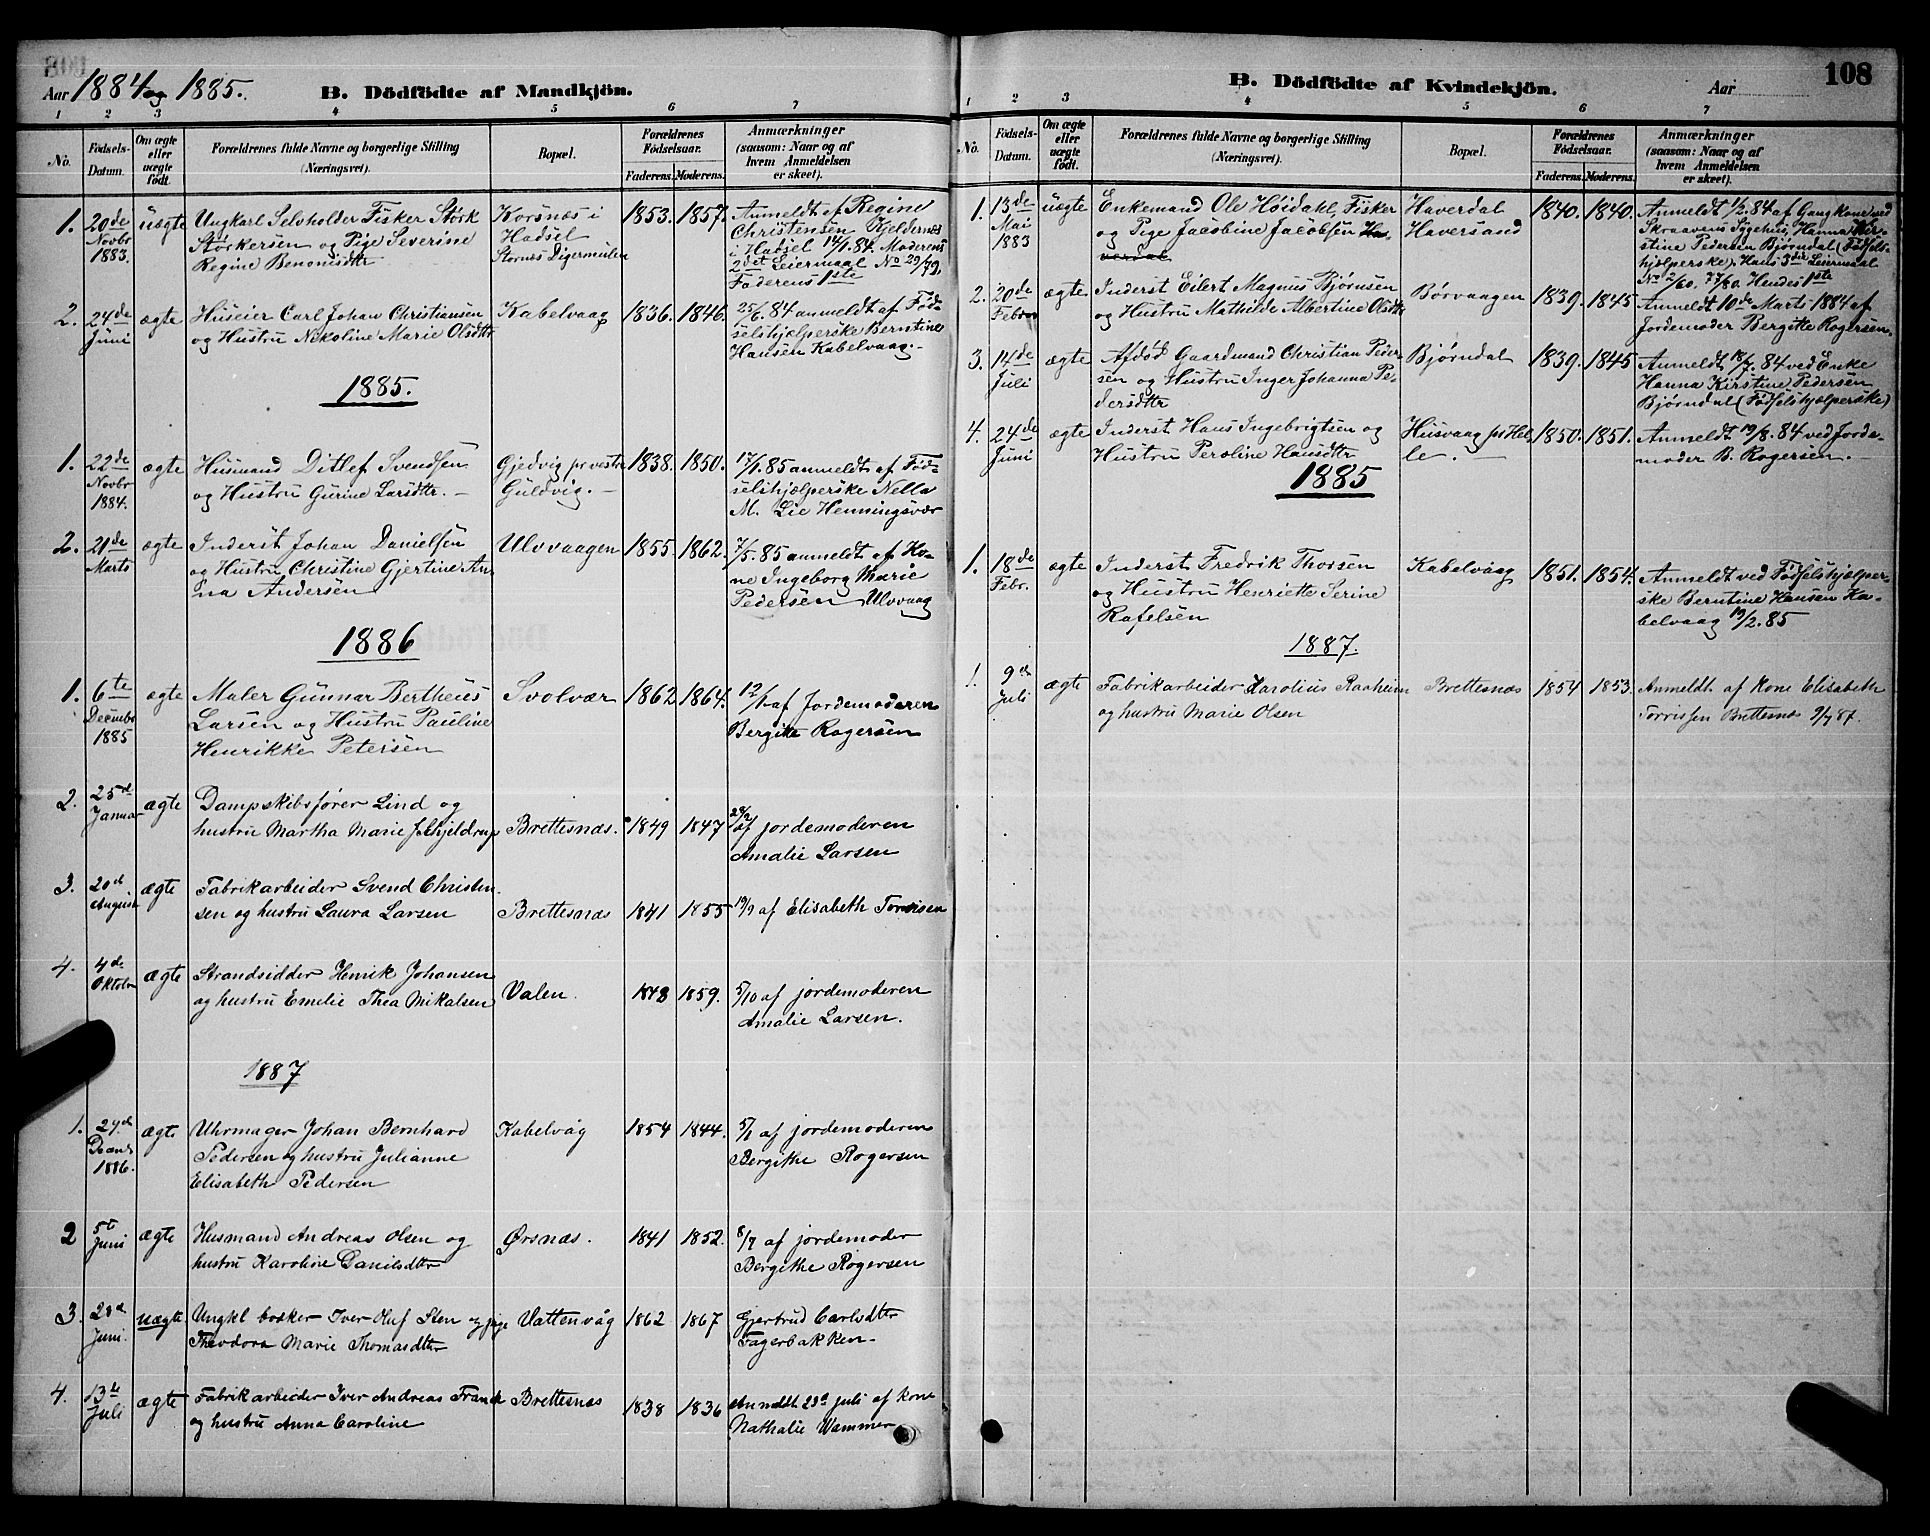 Aar 1884 og 1885.
B. Dödfödte af Mandkjön.
1 2 3 4 5 6 7
No.
Födsels-Datum.
Om ægte eller uægte födt.
Forældrenes fulde Navne og borgerlige Stilling (Næringsvei).
Bopæl.
Forældrenes Födselsaar.
Faderens. Moderens.
Anmærkninger (saasom: Naar og af hvem Anmeldelsen er skeet).
1. 20de uægte Ungkarl Selvholder Fisker Stork Korsnæs i 1853. 1857. Anmeldt af Regine
Novbr Storkersen og Pige Severine Hadsel Christensen Kjeldernæs
1883. Regine Benonisdtr Stornæs Digermulen i Hadsel 14/1.84. Moderens
2det Leiermaal No 29/79,
Faderens 1ste
2. 24de ægte Huseier Carl Johan Christiansen Kabelvaag 1836. 1846. 25/6.84 anmeldt af Fød-
Juni og Hustru Nikoline Marie Olsdtr selshjælperske Berntine
Hansen Kabelvaag.-
1885.
1. 22de ægte Husmand Ditlef Svendsen Gjedvig pr vestre 1838. 1850. 17/1.85 anmeldt af Fød-
Novbr og Hustru Gurine Larsdtr. - Guldvig. - selshjælperske Nella
1884. M. Lie Henningsvær
2. 21de ægte Inderst Johan Danielsen Ulvvaagen 1855. 1862. 7/5.85 anmeldt af Ko-
Marts og Hustru Christine Gjertine An- ne Ingeborg Marie
na Andersen Pedersen Ulvvaag
1886
1. 6te ægte Maler Gunnar Bertheus Svolvær 1862 1864. 12/1 af Jordemoderen
Decembr Larsen og Hustru Pauline Bergitte Rogersen
1885 Henrikke Petersen
2. 25d ægte Dampskibsfører Lind og
Januar hustru Martha Marie f. Schjeldrup Brettesnæs. 1849 1847 28/2 af jordemoderen
Amalie Larsen
3. 20d ægte Fabrikarbeider Svend Christen-
August sen og hustru Laura Larsen Brettesnæs 1841 1855 19/9 af Elisabeth Torrisen
4. 4de ægte Strandsidder Henrik Johansen
Oktober og hustru Emelie Thea Mikalsen Valen. 1848 1859. 5/10 af jordemoderen
Amalie Larsen.
1887
1. ægte Uhrmager Johan Bernhard Kabelvåg 1854 1844. 5/1 af jordemoderen
Pedersen og hustru Julianne Bergithe Rogersen
1886. Elisabeth Pedersen
2 5t ægte Husmand Andreas Olsen og Ørsnæs. 1841 1852. 8/7 af jordemoder
Juni hustru Karoline Danilsdtr Bergithe Rogersen
3. 28d uægte Ungkl Iver Oluf Sten og pige Vattenvåg 1862 1867 Gjertrud Carlsdtr
Juni. Theodora Marie Thomasdtr Fagerbakken.
4. 13de ægte Fabrikarbeider Iver Andreas Franck Brettesnæs 1838 1836 Anmeldt 23d juli af kone
Juli og hustru Anna Caroline Nathalie Wammer
B. Dödfödte af Kvindekjön.
Aar
108
1 2 3 4 5 6 7
No.
Födsels-Datum.
Om ægte eller uægte födt.
Forældrenes fulde Navne og borgerlige Stilling (Næringsvei).
Bopæl.
Forældrenes Födselsaar.
Faderens. Moderens.
Anmærkninger (saasom: Naar og af hvem Anmeldelsen er skeet).
1. 13de uægte Enkemand Ole Høidahl, Fisker Haverdal 1840. 1840. Anmeldt 1/2.84 af Gangkone ved
Mai og Pige Jacobine Jacobsen Ha- Haversand Skraavens Sygehus, Hanna Kir-
1883 verdal stine Pedersen Bjørndal (Fødsels-
hjælperske). Hans 3die Leiermaal
No 2/60. 27/80. Hendes 1ste
2. 20de ægte Inderst Eilert Magnus Bjørnsen Børvaagen 1839. 1845. Anmeldt 10de Marts 1884 af
Febr og Hustru Mathilde Albertine Olsdtr Jordemoder Bergitte Rogersen.
3. 14de ægte Afdød Gaardmand Christian Peder- Bjørndal 1839. 1845 Anmeldt 18/7.84 ved Enke
Juli sen og Hustru Inger Johanna Pe- Hanna Kirstine Pedersen
dersdtr Bjørndal (Fødselshjælperske)
4. 24de ægte Inderst Hans Ingebrigtsen og Husvaag pr Hel- 1850. 1851. Anmeldt 19/8.84 ved Jorde-
Juni Hustru Peroline Hansdtr le. - moder B. Rogersen. -
1885
1. 18de ægte Inderst Fredrik Thorsen Kabelvaag 1851. 1854. Anmeldt ved Fødselshjælper-
Febr. og Hustru Henriette Serine ske Berntine Hansen Ka-
Rafelsen belvaag 19/2.85
1887.
1. 9de ægte Fabrikarbeider Karolius Raaheim Brettesnæs 1854 1853. Anmeldt af Kone Elisabeth
Juli og hustru Marie Olsen Torrissen Brettesnæs 9/7 87.